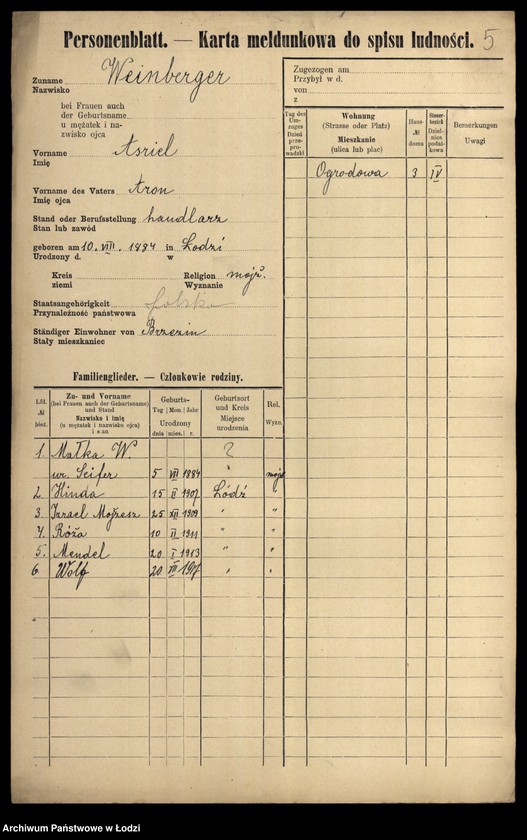 Personenblatt. — Karta meldunkowa do spisu ludności. 5
Zuname Weinberger
Nazwisko
bei Frauen auch
der Geburtsname
u mężatek i na-
zwisko ojca
Vorname Asriel
Imię
Vorname des Vaters Aron
Imię ojca
Stand oder Berufsstellung handlarz
Stan lub zawód
geboren am 10. VIII. 1884 in Łodzi
Urodzony d. w
Kreis Religion mojż.
ziemi Wyznanie
Staatsangehörigkeit polska
Przynależność państwowa
Ständiger Einwohner von Brzezin
Stały mieszkaniec
Zugezogen am
Przybył w d.
von
z
Tag des Um-zuges
Dzień prze-pro-wadzki
Wohnung
(Strasse oder Platz)
Mieszkanie
(ulica lub plac)
Haus-
№
domu
Steuer-bezirk
Dziel-nica podat-kowa
Bemerkungen
Uwagi
Ogrodowa 3 IV
Familienglieder. — Członkowie rodziny.
Lfd.
№
bież.
Zu- und Vorname
(bei Frauen auch der Geburtsname)
und Stand
Nazwisko i imię
(u mężatek i nazwisko ojca)
i stan
Geburts-
Tag | Mon. | Jahr
Urodzony
dnia | mies. | r.
Geburtsort
und Kreis
Miejsce
urodzenia
Rel.
Wyzn.
1. Małka W. ?
ur. Seifer 5 VII 1884 " mojż
2. Hinda 15 II 1907 Łódź "
3. Izrael Mojżesz 25 XII 1909 " "
4. Róża 10 II 1911 " "
5. Mendel 20 I 1913 " "
6. Wolf 20 " "
Archiwum Państwowe w Łodzi